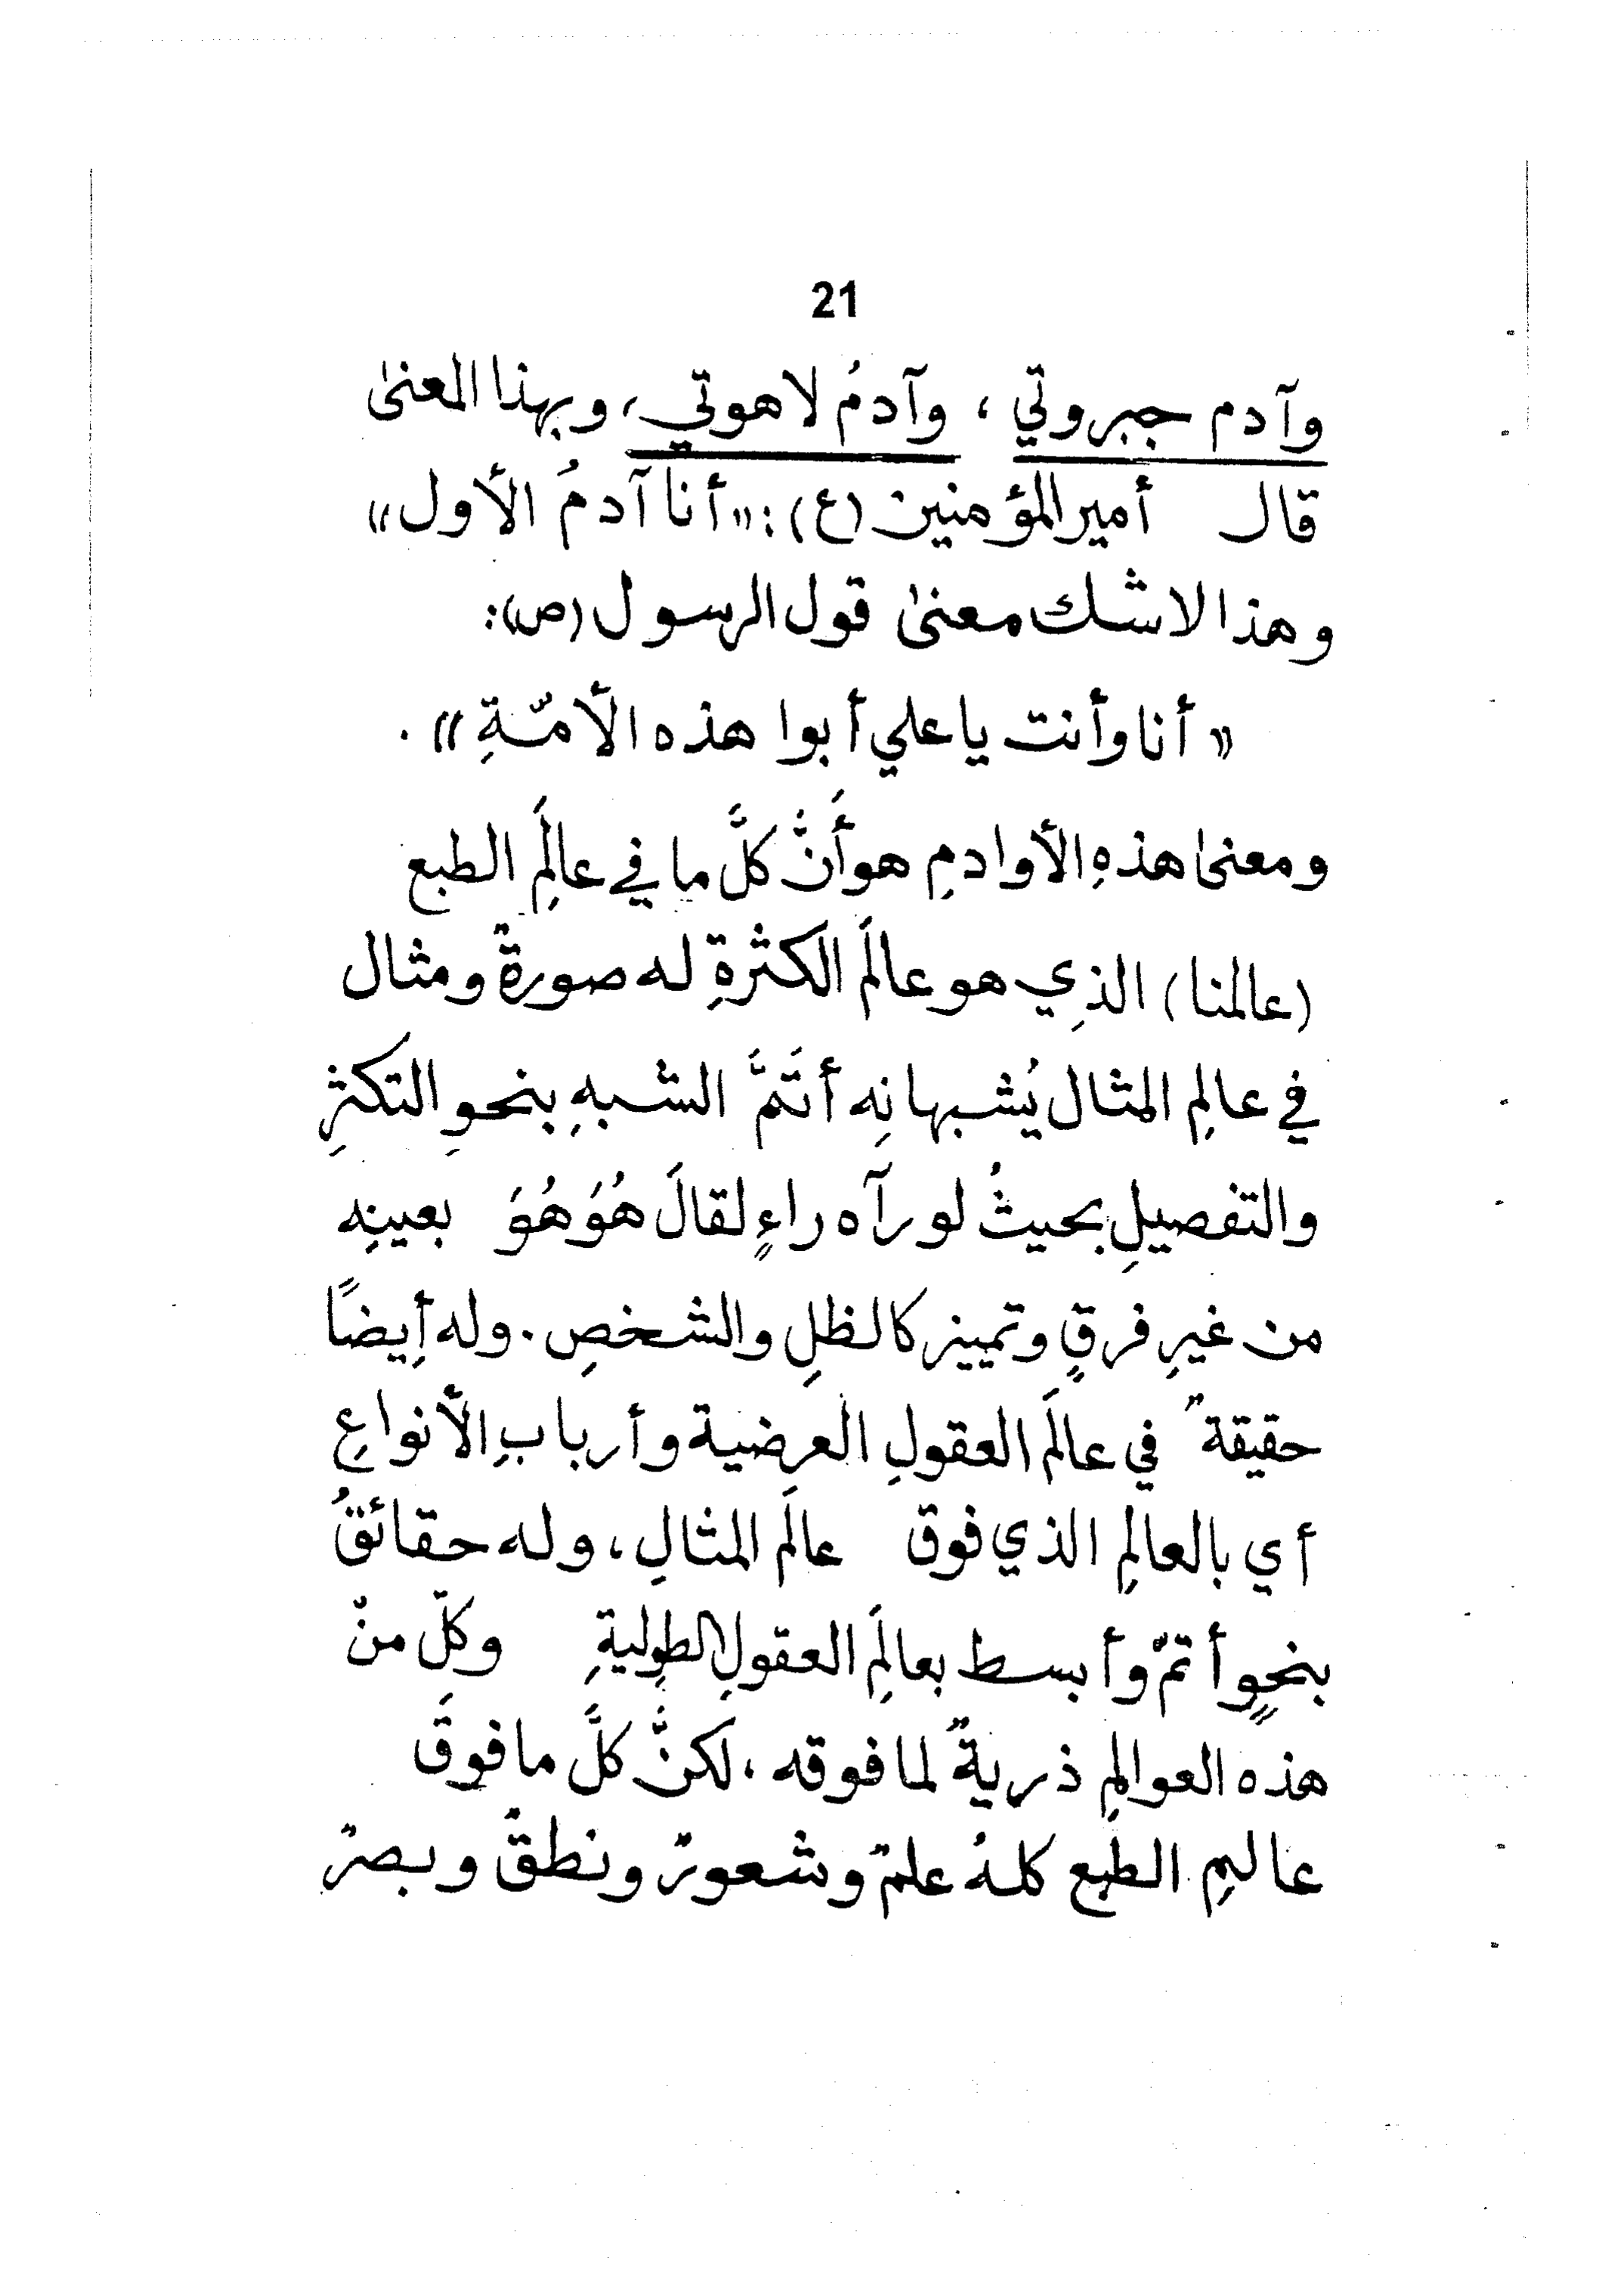 21
وآدم جبروتي ، وآدمُ لاهوتي، وبهذا المعنىٰ
قال أمير المؤمنين (ع): «أنا آدمُ الأول»
وهذا لاشك معنىٰ قول الرسول (ص):
« أنا وأنت يا علي أبوا هذه الأمّةِ » .
ومعنىٰ هذهِ الأوادمِ هو أَنَّ كلَّ ما في عالَمِ الطبع
(عالمنا) الذِي هو عالَم الكثرةِ له صورةٌ ومثال
في عالمِ المثال يُشبهانِه أتَمَّ الشبهِ بنحوِ التكثرِ
والتفصيلِ بحيثُ لو رآه راءٍ لقالَ هُوَ هُوَ بعينِه
من غيرِ فرقٍ وتمييز كالظلِ والشخصِ . وله أيضًا
حقيقةٌ في عالَم العقولِ العرضِية وأربابِ الأنواعِ
أي بالعالمِ الذي فوق عالَم المثالِ ، وله حقائقُ
بنحوٍ أتمّ وأبسط بعالَمِ العقولِ الطولِيةِ وكلّ منْ
هذه العوالمِ ذريةٌ لما فوقه ، لكنَّ كلَّ ما فوقَ
عالمِ الطبع كلهُ علمٌ وشعورٌ ونطقٌ وبصرٌ